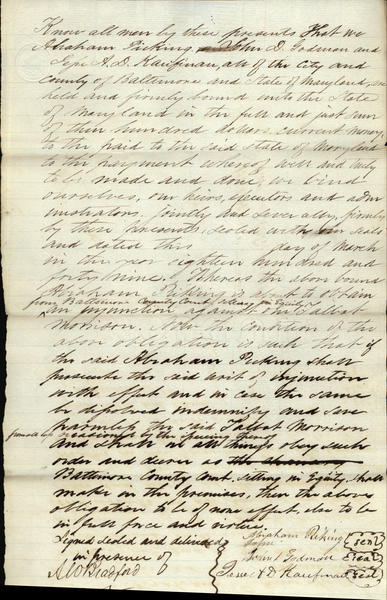 Know all men by these presents That we
Abraham Picking, John D. Todman and
A. D. Kaufman, all of the City and
County of Baltimore and State of Maryland, are
held and firmly bound unto the State
of Maryland in the full and just sum
of hundred dollars current money
to be paid to the said State of Maryland
to the payment whereof well and truly
to be made and done, we bind
ourselves, our heirs, executors and adm
inistrators, jointly and severally, firmly
by these presents, sealed with our seals
and dated this day of March
in the year eighteen hundred and
forty nine. Whereas the above bound
Abraham Picking is about to obtain
from Baltimore County Court sitting in Equity
an injunction against Talbot
Morrison. Now the condition of the
above obligation is such that if
the said Abraham Picking shall
prosecute the said writ of injunction
with effect and in case the same
be dissolved indemnify and save
harmless the said Talbot Morrison
from all
and shall in all things obey such
order and decree as
Baltimore County Court, sitting in Equity shall
make in the premises, then the above
obligation to be of none effect else to be
in full force and virtue.
Signed sealed and delivered
in presence of
Abraham Picking seal
John D Todman seal
A D Kaufman seal
Bradford